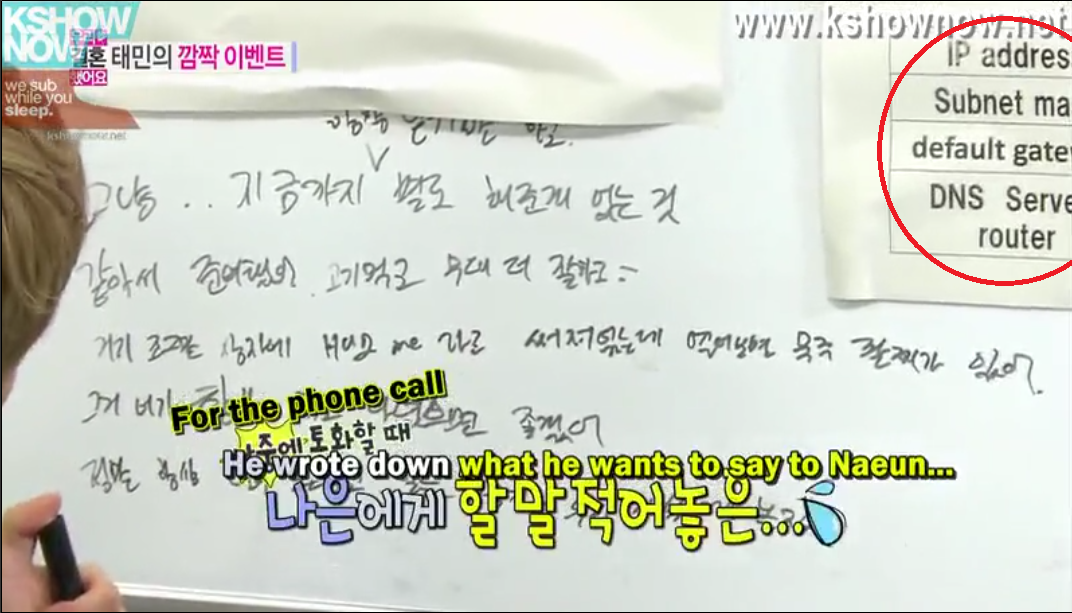 KSHOW
NOW
we sub
while you
sleep.
www.kshownow.net
우리
결혼
했어요
태민의 깜짝 이벤트
www.kshownow.net
IP addres
Subnet ma
default gate
DNS Serve
router
그냥 .. 지금까지 별로 해준게 없는 것
같아서 고기먹고 무대 더 잘하고
거기 조그만 상자에 Hug me 라고 써져있는데 열어보면 목걸이가 있어.
좋겠어
정말 항상
For the phone call
나중에 통화할 때
He wrote down what he wants to say to Naeun...
나은에게 할 말 적어놓은...